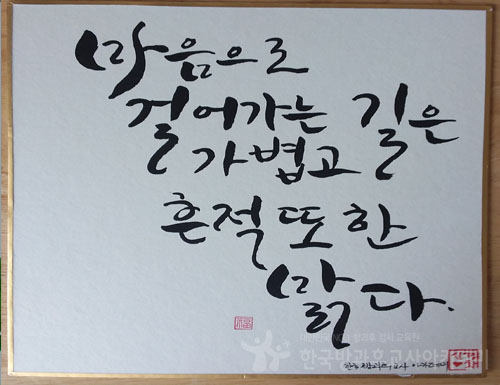 마음으로
걸어가는 길은
가볍고
흔적 또한
맑다.
한국방과후교사아카데미